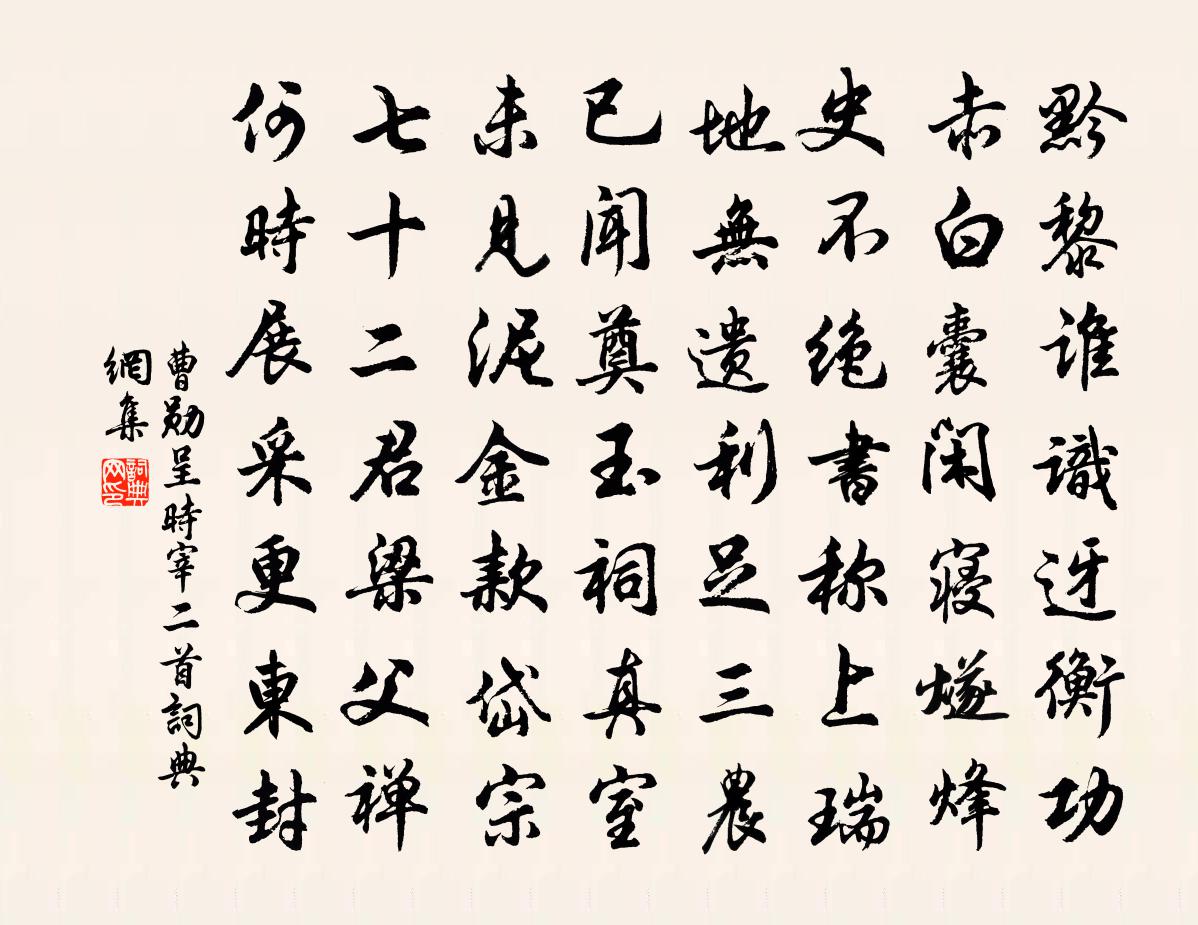 黔黎谁識迓衡功
赤白囊闲寝燧烽
史不绝書称上瑞
地無遗利足三農
已闻奠玉祠真室
未見泥金款岱宗
七十二君梁父禅
何時展采更東封
曹勋呈時宰二首詞典
網集
詞典
网印